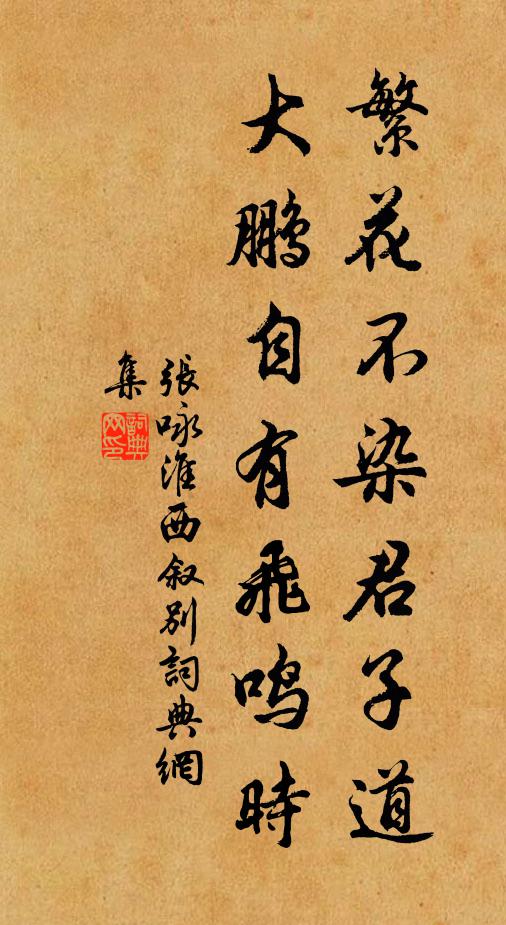 繁花不染君子道
大鹏自有飛鳴時
張咏淮西叙别詞典網
集
詞典
网印